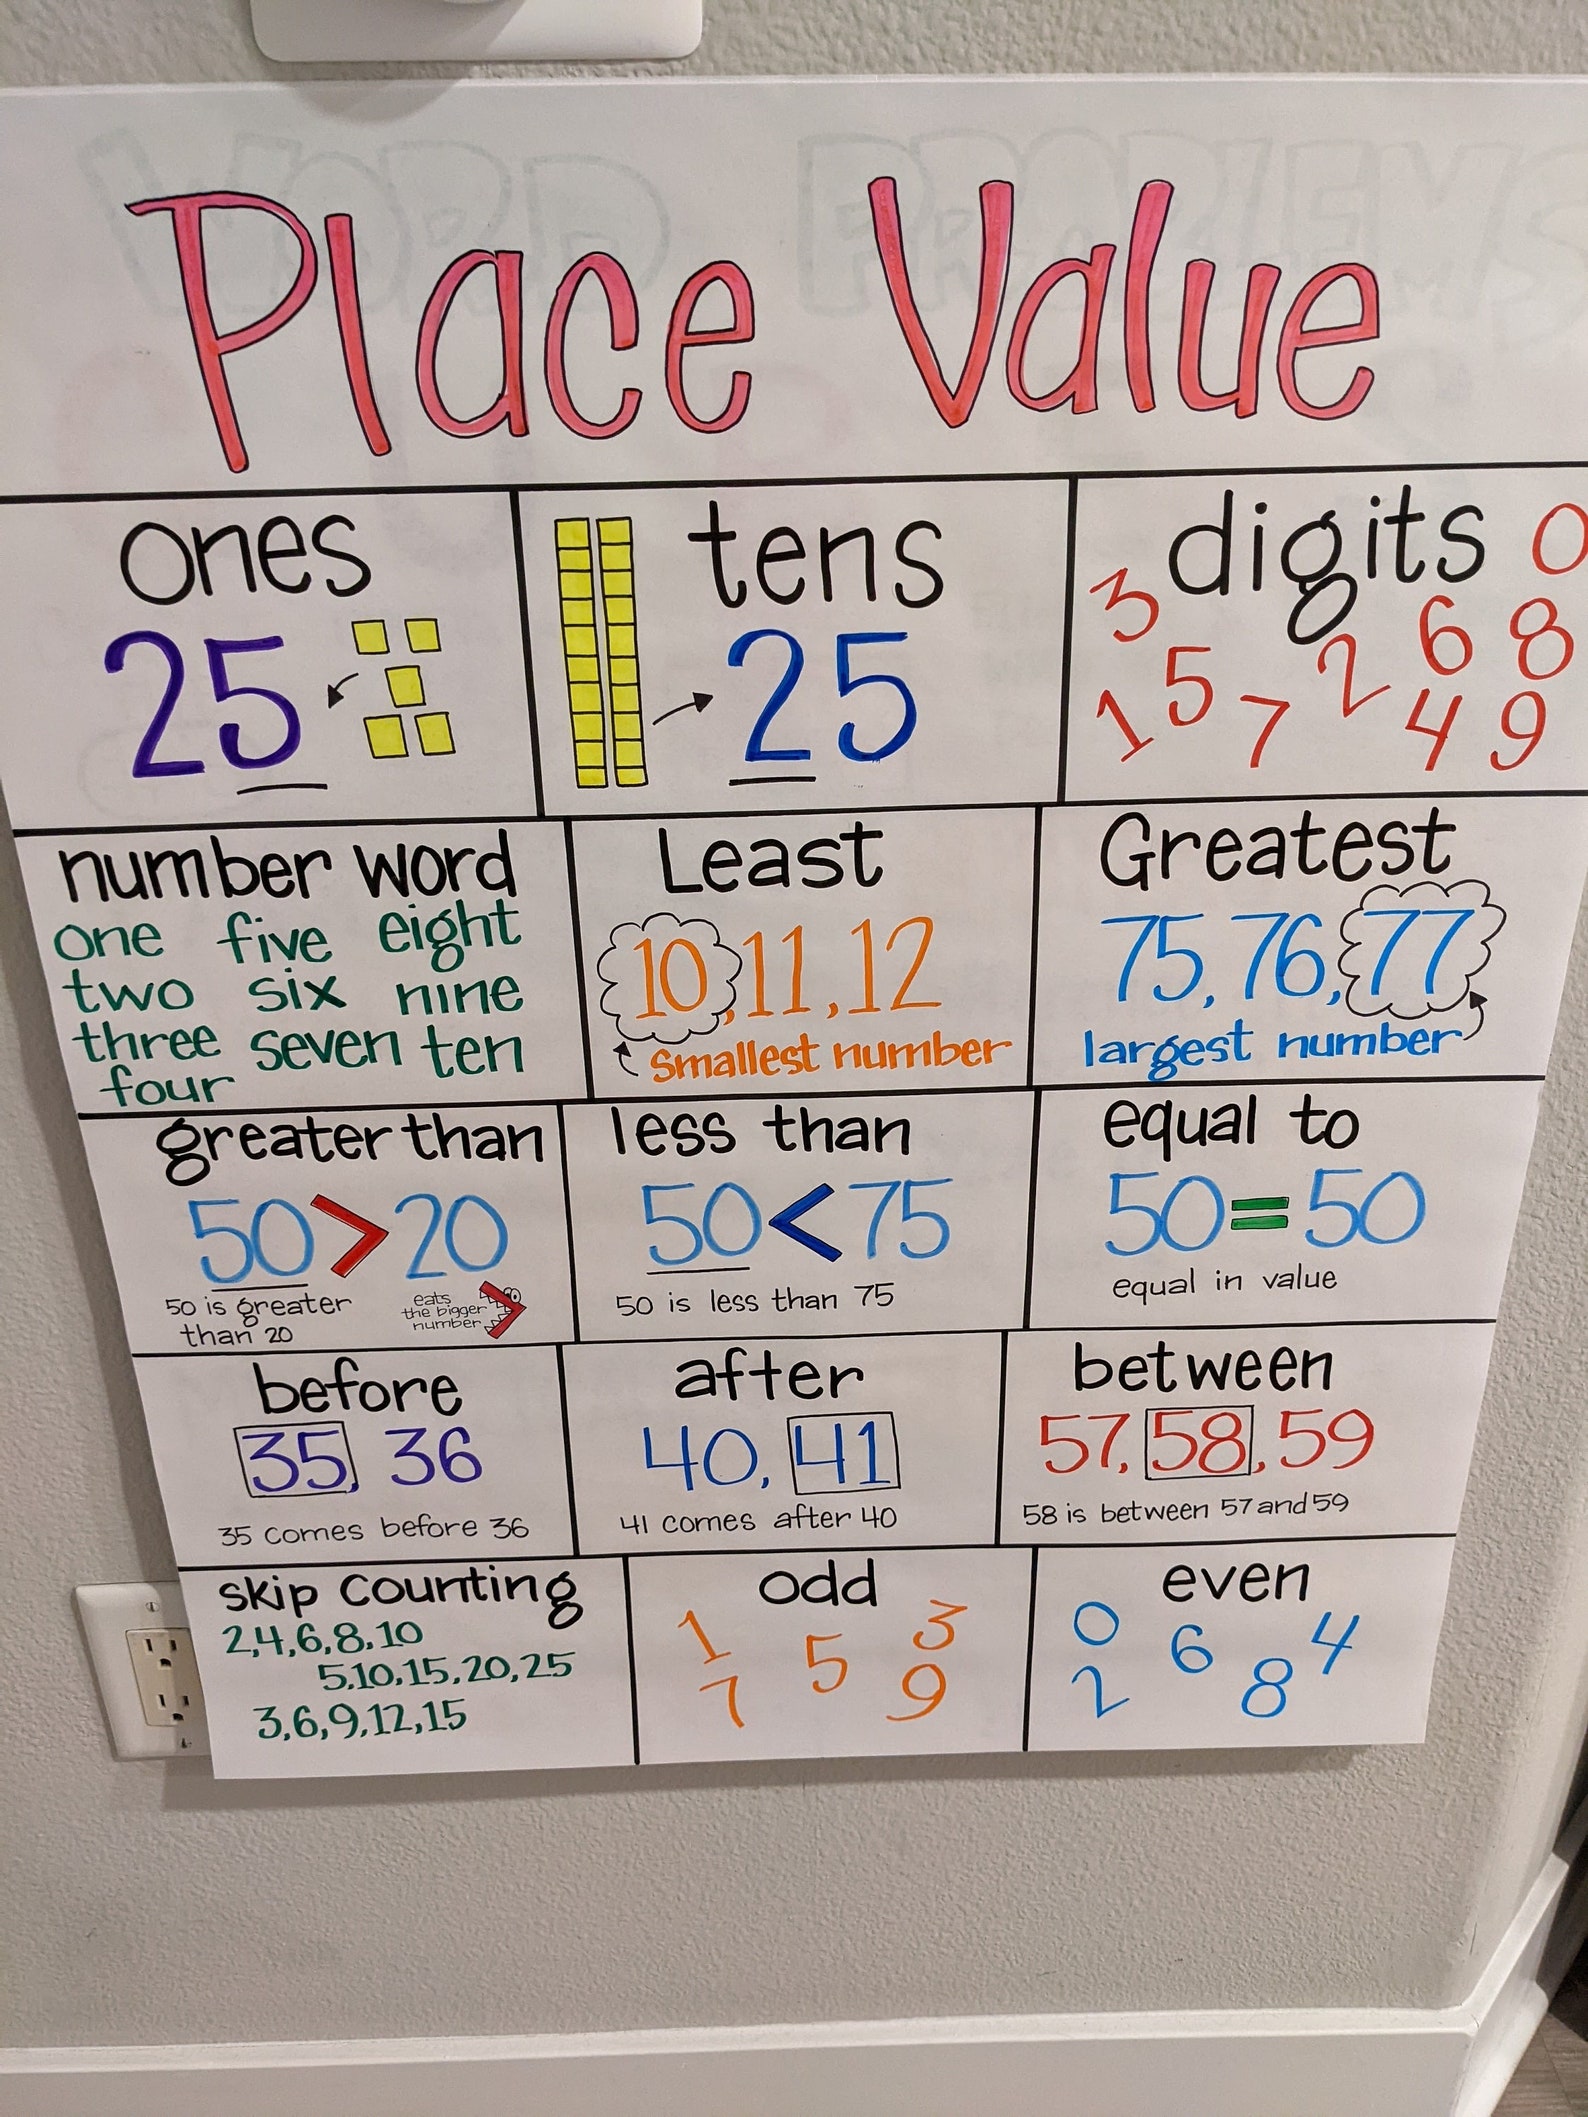 Place Value
ones
25
tens
25
digits
0
3
6
8
5
2
1
7
4
9
number word
one five eight
two six nine
three seven ten
four
Least
10, 11, 12
smallest number
Greatest
75, 76, 77
largest number
greater than
50 > 20
50 is greater
than 20
eats
the bigger
number
less than
50 < 75
50 is less than 75
equal to
50 = 50
equal in value
before
35, 36
35 comes before 36
after
40, 41
41 comes after 40
between
57, 58, 59
58 is between 57 and 59
skip counting
2,4,6,8,10
5,10,15,20,25
3,6,9,12,15
odd
1 5 3
7 9
even
0 6 4
2 8